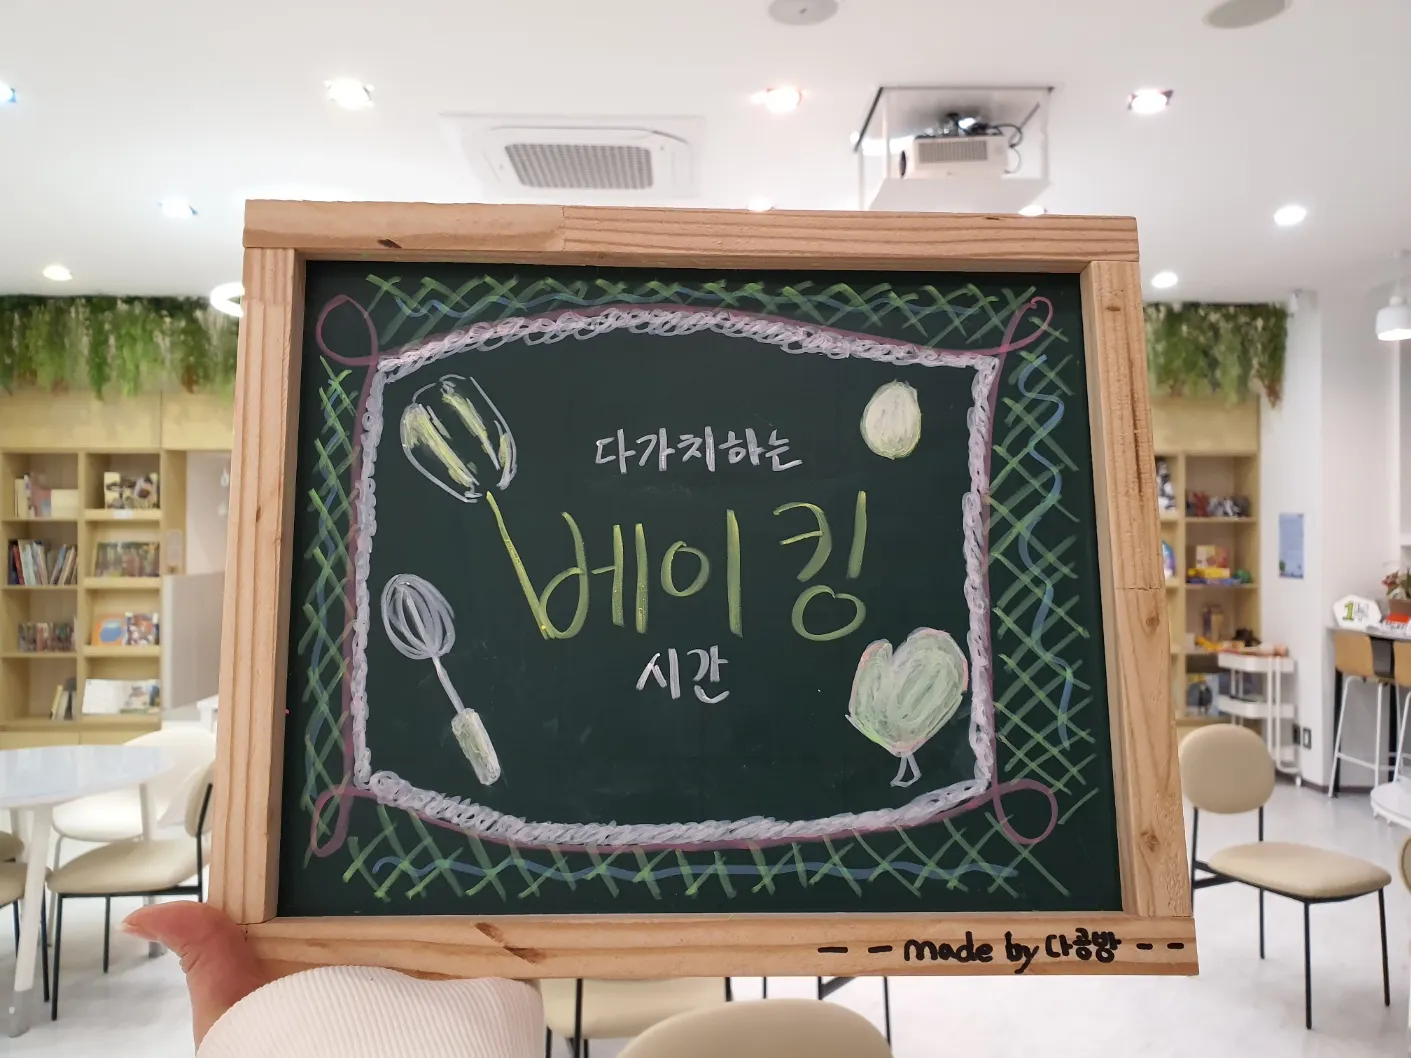 다가치하는
베이킹
시간
-- made by 다공방 --